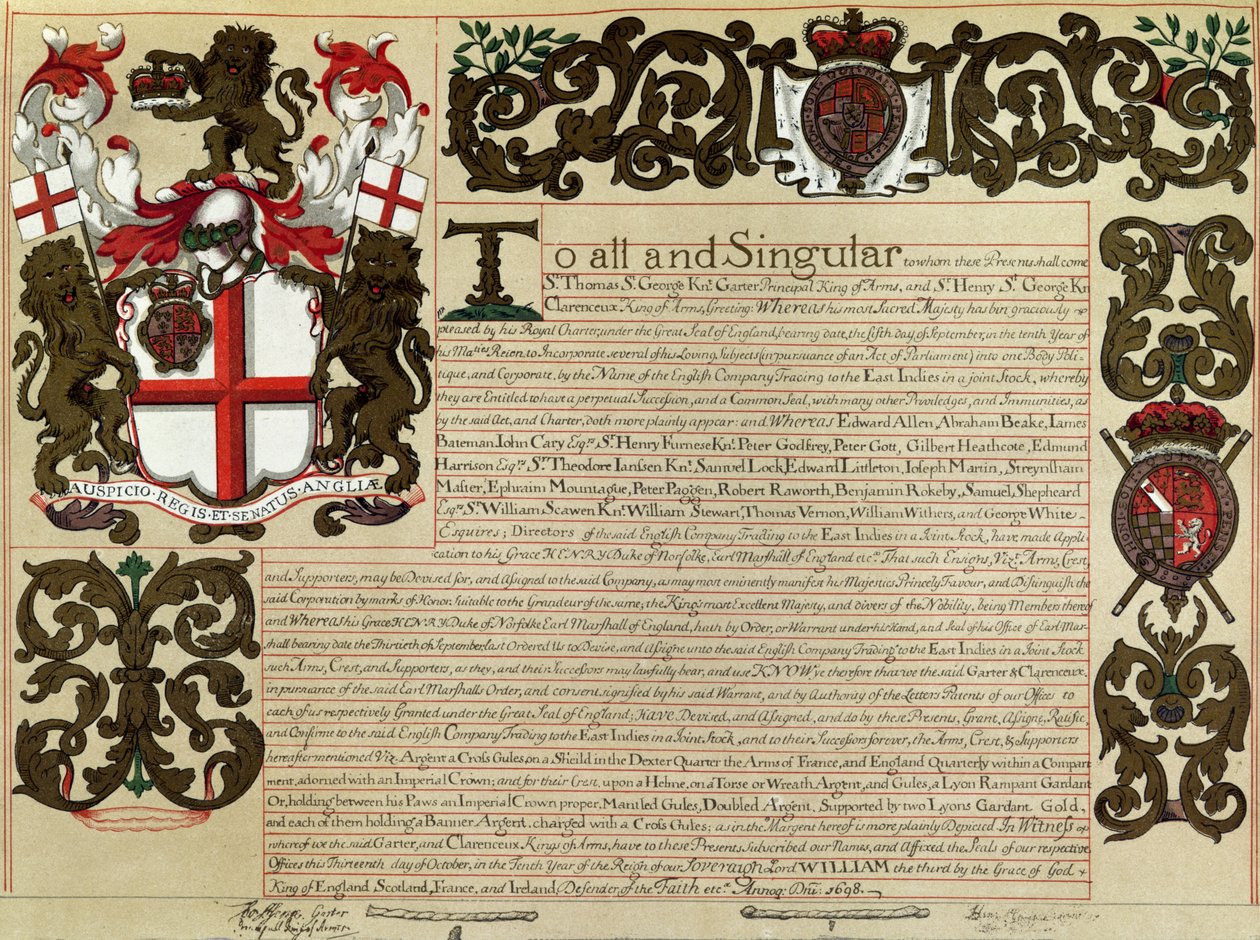 AUSPICIO·REGIS·ET·SENATUS·ANGLIÆ
To all and Singular to whom these Presents shall come
Sr. Thomas St. George Knt. Garter Principal King of Arms, and Sr. Henry St. George Kn
Clarenceux King of Arms, Greeting: Whereas his most Sacred Majesty has bin graciously
pleased by his Royal Charter, under the Great Seal of England, bearing date, the fifth day of September, in the tenth Year of
his Maties Reign, to Incorporate several of his Loving Subjects (in pursuance of an Act of Parliament) into one Body Poli-
tique, and Corporate, by the Name of the English Company Trading to the East Indies in a joint Stock, whereby
they are Entitled to have a perpetual Succession, and a Common Seal, with many other Priviledges, and Immunities, as
by the said Act, and Charter, doth more plainly appear: and Whereas Edward Allen, Abraham Beake, Iames
Bateman, Iohn Cary Esqrs. Sr. Henry Furnese Knt. Peter Godfrey, Peter Gott, Gilbert Heathcote, Edmund
Harrison Esqrs. Sr. Theodore Ianssen Knt. Samuel Lock, Edward Littleton, Ioseph Martin, Streynsham
Master, Ephraim Mountague, Peter Paggen, Robert Raworth, Benjamin Rokeby, Samuel, Shepheard
Esqrs. Sr. William Scawen Knt. William Stewart, Thomas Vernon, William Withers, and George White
Esquires; Directors of the said English Company Trading to the East Indies in a Joint Stock, have made Appli
cation to his Grace HENRY Duke of Norfolke, Earl Marshall of England etca. That such Ensigns, Vizt. Arms, Crest,
and Supporters, may be Devised for, and Assigned to the said Company, as may most eminently manifest his Majesties Princely Favour, and Distinguish the
said Corporation by marks of Honor Suitable to the Grandeur of the same; the Kings most Excellent Majesty, and divers of the Nobility, being Members thereof
and Whereas his Grace HENRY Duke of Norfolke Earl Marshall of England, hath by Order, or Warrant under his Hand, and Seal of his Office of Earl Mar-
shall bearing date the Thirtieth of September last Ordered Us to Devise, and Assigne unto the said English Company Trading to the East Indies in a Joint Stock
such Arms, Crest, and Supporters, as they, and their Successors may lawfully bear, and use KNOW ye therefore that we the said Garter & Clarenceux,
in pursuance of the said Earl Marshalls Order, and consent signified by his said Warrant, and by Authority of the Letters Patents of our Offices to
each of us respectively Granted under the Great Seal of England; HAVE Devised, and Assigned, and do by these Presents, Grant, Assigne, Ratifie,
and Confirme to the said English Company Trading to the East Indies in a Joint Stock, and to their Successors forever, the Arms, Crest, & Supporters
hereafter mentioned Viz. Argent a Cross Gules, on a Sheild in the Dexter Quarter the Arms of France, and England Quarterly within a Compart
ment, adorned with an Imperial Crown; and for their Crest, upon a Helme, on a Torse or Wreath Argent, and Gules, a Lyon Rampant Gardant
Or, holding between his Paws an Imperial Crown proper, Mantled Gules, Doubled Argent, Supported by two Lyons Gardant Gold,
and each of them holding a Banner Argent, charged with a Cross Gules; as in the Margent hereof is more plainly Depicted In Witness
whereof we the said Garter, and Clarenceux Kings of Arms, have to these Presents Subscribed our Names, and Affixed the Seals of our respective
Offices this Thirteenth day of October, in the Tenth Year of the Reign of our Soveraign Lord WILLIAM the third by the Grace of God
King of England Scotland, France, and Ireland, Defender, of the Faith etca. Annoq: Dni: 1698.
Garter